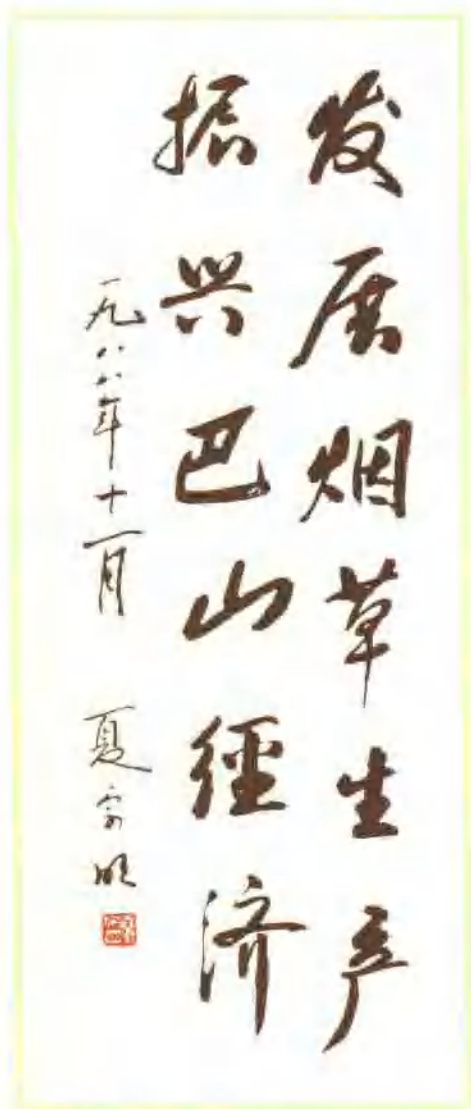 发展烟草生产
振兴巴山經济
一九八八年十一月 夏宗明